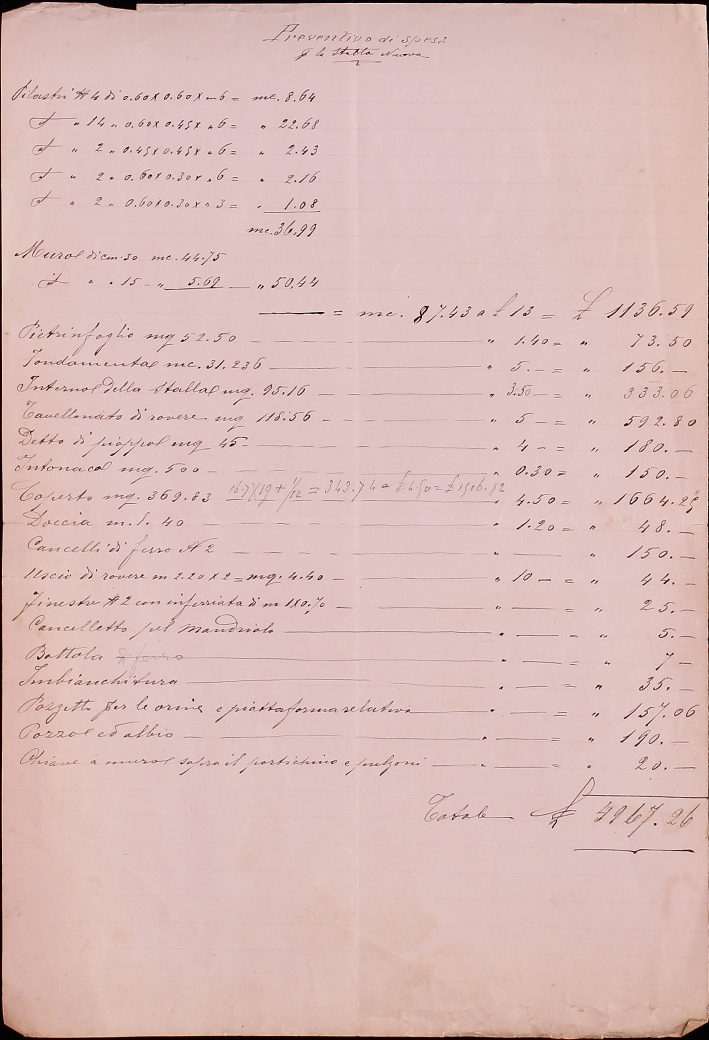 Preventivo di spesa
p la Stalla Nuova
Pilastri # 4 di 0.60 x 0.60 x m 6 = mc. 8.64
I " 14 " 0.60 x 0.45 x " 6 = " 22.68
I " 2 " 0.45 x 0.45 x " 6 = " 2.43
I " 2 " 0.60 x 0.30 x " 6 = " 2.16
I " 2 " 0.60 x 0.30 x " 3 = " 1.08
mc. 36.99
Muro di cm. 30 mc. 44.75
I " " 15 - " 5.69 — " 50.44
= mc. 87.43 a £ 13 = £ 1136.59
Pietrinfoglio mq 52.50 " 1.40 = " 73.50
Fondamenta mc. 31.236 " 5. — = " 156. —
Interno della Stalla mq. 95.16 " 3.50 — = " 333.06
Tavellonato di rovere mq 118.56 " 5 — = " 592.80
Detto di pioppo mq 45 — " 4 — = " 180. —
Intonaco mq. 500 " 0.30 = " 150. —
Coperto mq. 369.83 = 343.74 £ 4.50 = £ " 4.50 = " 1664.25
Doccia m. l. 40 " 1.20 = " 48. —
Cancelli di ferro N 2 " — = " 150. —
Uscio di rovere m 2.20 x 2 = mq. 4.40 — " 10 — = " 44. —
Finestre # 2 con inferriata di m 1 x 0.70 " — = " 25. —
Cancelletto pel Mandriolo " — = " 5. —
Bottola di ferro " — = " 7 —
Imbianchitura " — = " 35. —
Pozzetto per le orine e piattaforma relativa = " 157.06
Pozzo ed albio — " — = " 190. —
Chiave a muro sopra il portichino e — " — = " 20. —
Totale £ 4967.26